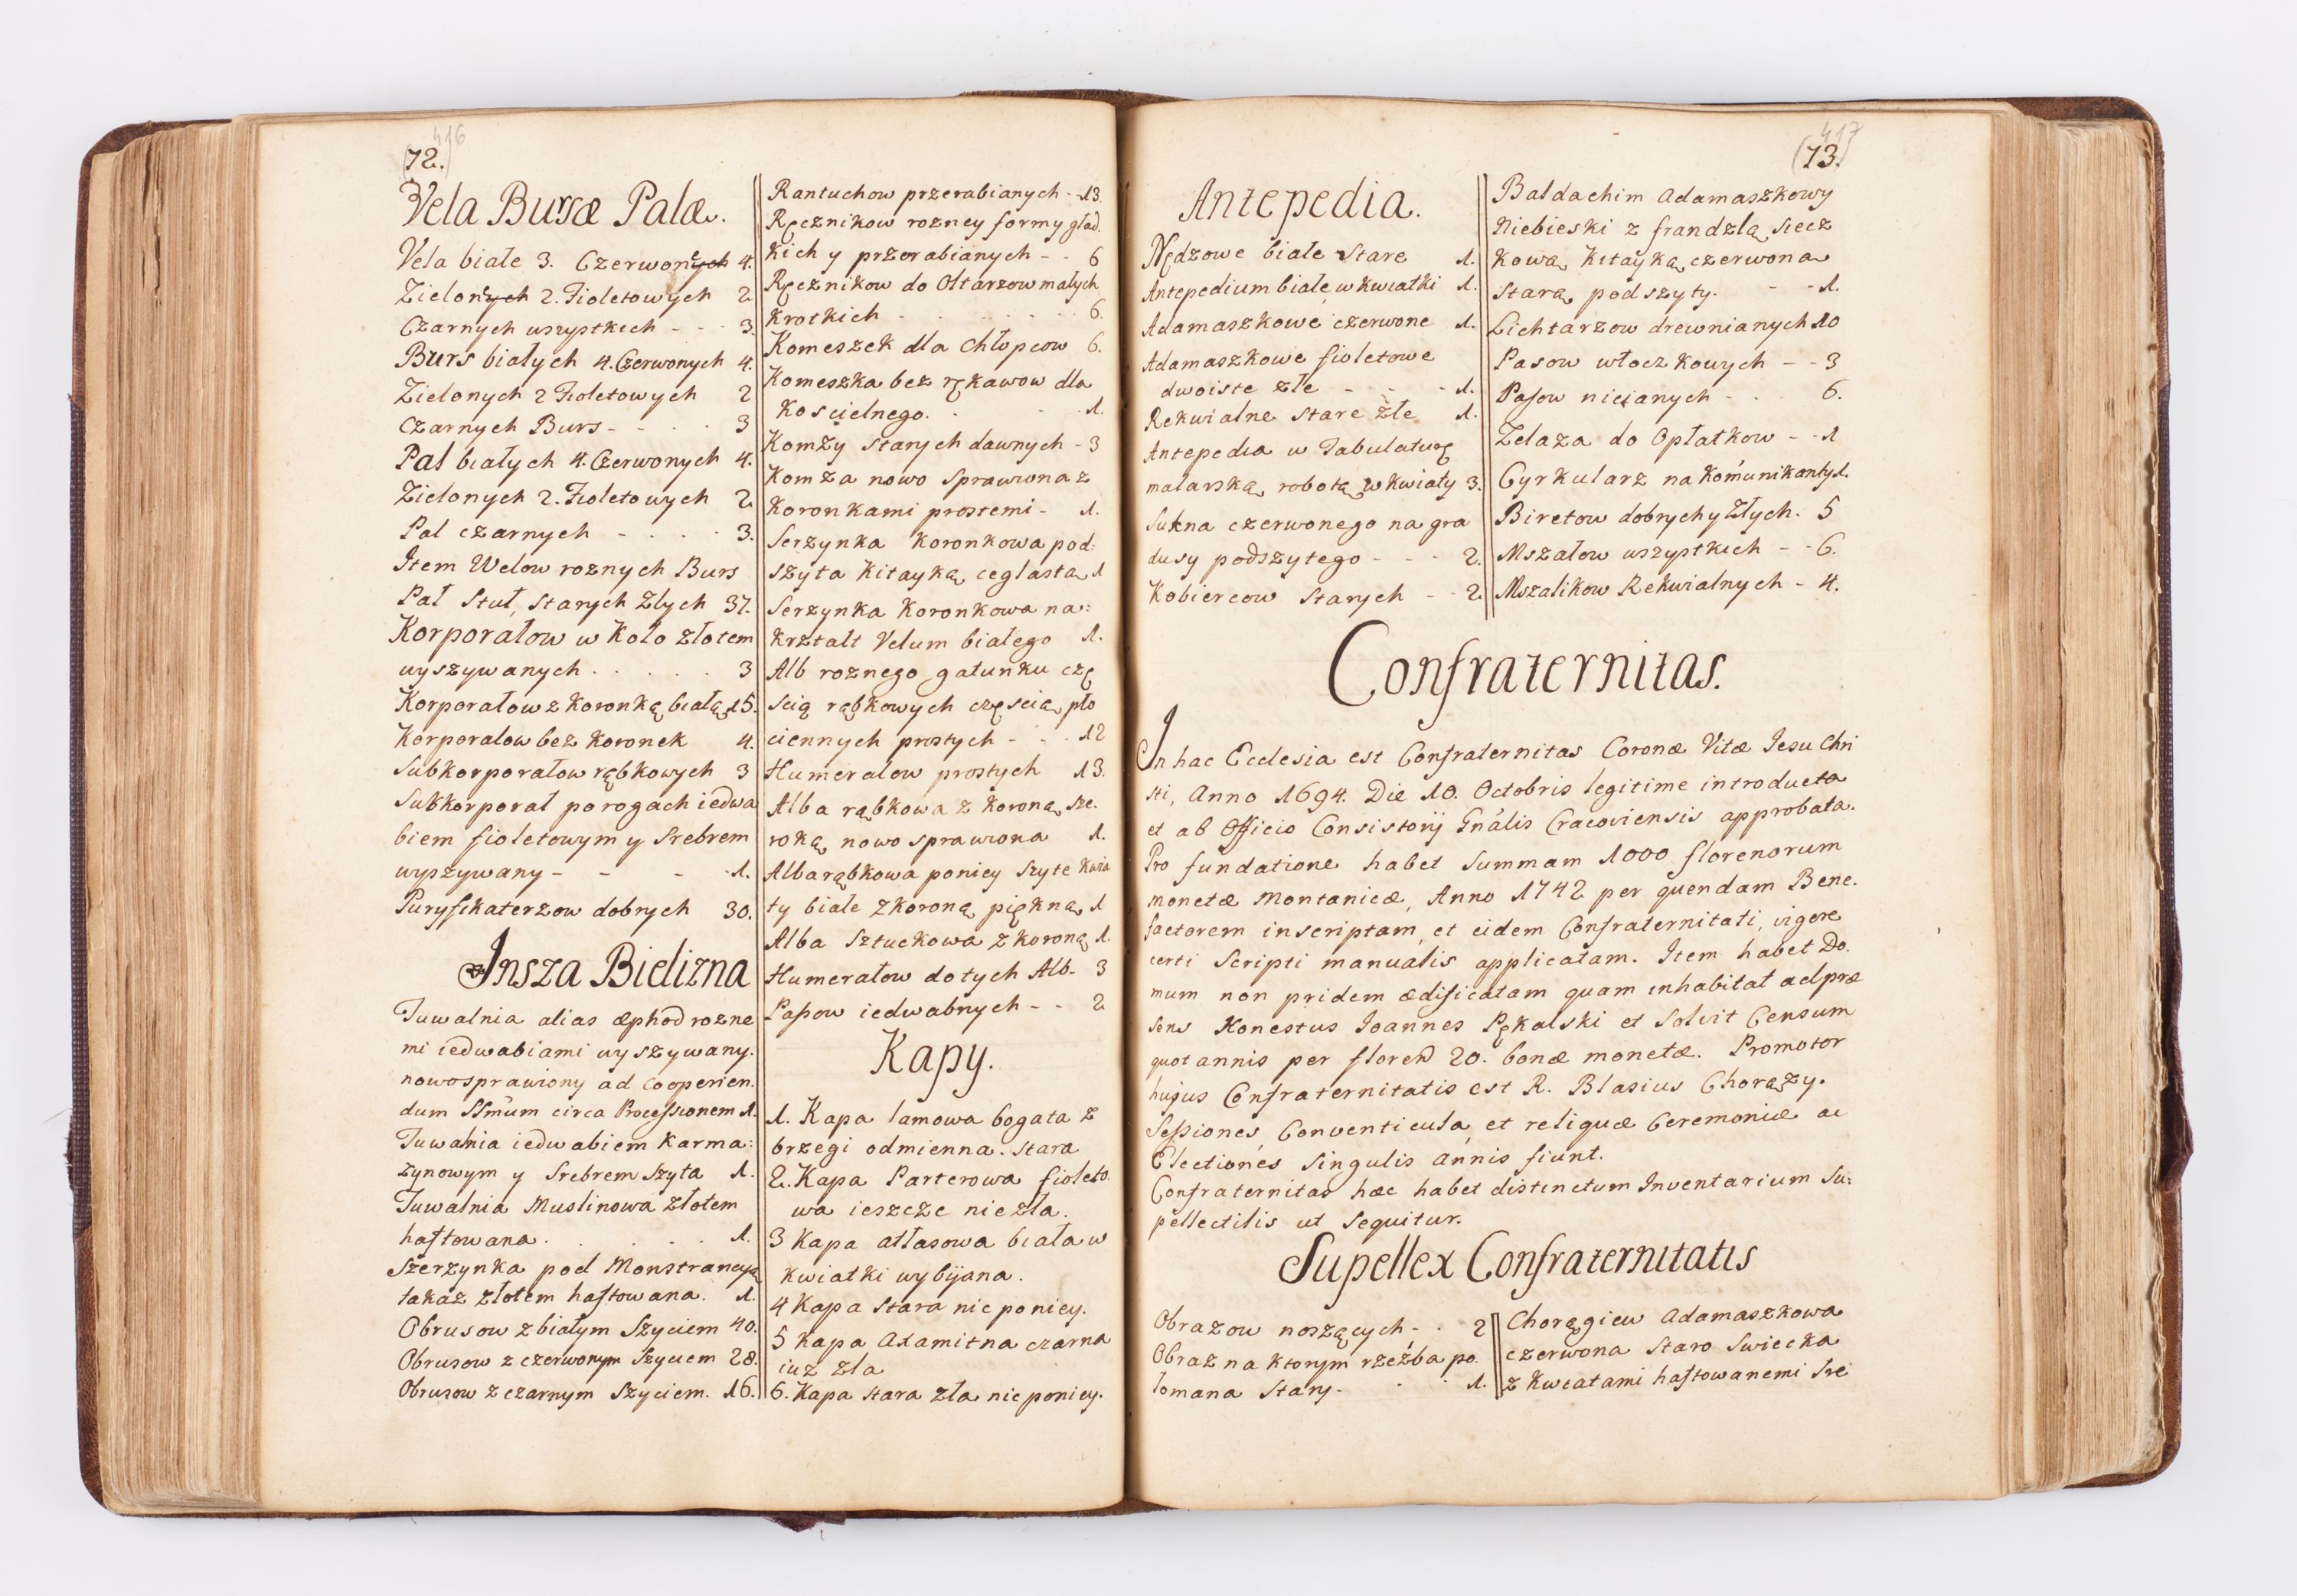 416
72.
Vela Bursæ Palæ.
Vela białe 3. Czerwone 4.
Zielone 2. Fioletowych 2
Czarnych wszystkich - - - 3.
Burs białych 4. Czerwonych 4.
Zielonych 2 Fioletowych 2
Czarnych Burs - - - 3
Pal białych 4. Czerwonych 4.
Zielonych 2. Fioletowych 2
Pal czarnych - . . . 3.
Item Welow roznych Burs
Pal Stuł, Starych Złych 37.
Korporałow w Koło złotem
wyszywanych . . . . . 3
Korporałow z koronką białą 15.
Korporałow bez Koronek 4.
Subkorporałow rąbkowych 3
Subkorporał po rogach iedwa
biem fioletowym y Srebrem
wyszywany - - - 1.
Puryfikaterzow dobrych 30.
Insza Bielizna
Tuwalnia alias æphod rozne
mi iedwabiami wyszywany.
nowosprawiony ad Cooperien.
dum SSmum circa Processionem 1.
Tuwalnia iedwabiem Karma:
zynowym y Srebrem Szyta 1.
Tuwalnia Muslinowa złotem
haftowana . . . . . 1.
Szerzynka pod Monstrancyą
takaz złotem haftowana. 1.
Obrusow z białym Szyciem 40.
Obrusow z czerwonym Szyciem 28.
Obrusow z czarnym Szyciem. 16.
Rantuchow przerabianych - - 13.
Ręcznikow rozney formy gład.
kich y przerabianych - - 6
Ręcznikow do Ołtarzow małych
krotkich - . . . . . . 6.
Komeszek dla Chłopcow 6.
Komeszka bez rękawow dla
Koscielnego. . - . 1.
Komży Starych dawnych - 3
Komża nowo Sprawiona z
Koronkami prostemi - 1.
Serzynka Koronkowa pod:
szyta Kitayką ceglastą 1
Serzynka Koronkowa na:
Krztałt Velum białego 1.
Alb roznego gatunku czę
scią rąbkowych częscią pło
ciennych prostych - - - 12
Humerałow prostych 13.
Alba rąbkowa z koroną Sze.
roką nowo sprawiona 1.
Alba rąbkowa po niey Szyte kwia
ty białe z koroną piękną 1
Alba Sztuckowa z koroną 1.
Humerałow do tych Alb. 3
Pasow iedwabnych - - 2
Kapy.
1. Kapa lamowa bogata z
brzegi odmienna. Stara
2. Kapa Parterowa fioleto.
wa ieszcze niezła.
3 Kapa atłasowa biała w
kwiatki wybijana.
4 Kapa Stara nic po niey.
5 Kapa Axamitna czarna
iuz zła
6. Kapa Stara zła nic po niey.
417
73.
Antepedia.
Nędzowe białe Stare 1.
Antepedium białe w kwiatki 1.
Adamaszkowe czerwone 1.
Adamaszkowe fioletowe
dwoiste złe - - - - 1.
Rekwialne Stare złe 1.
Antepedia w Tabulaturę
malarską robotą w kwiaty 3.
Sukna czerwonego na gra
dusy podszytego - - - 2.
Kobiercow Starych - - 2.
Baldachim Adamaszkowy
Niebieski z frandzlą siecz
kową Kitayką czerwoną
Starą podszyty. - - 1.
Lichtarzow drewnianych 10
Pasow włoczkowych - - 3
Pasow nicianych - . . 6.
Zelaza do Opłatkow - - 1
Cyrkularz na Komunikanty 1.
Biretow dobrych y Złych. 5
Mszałow wszystkich - - 6.
Mszalikow Rekwialnych - 4.
Confraternitas.
In hac Ecclesia est Confraternitas Coronæ Vitæ Iesu Chri
sti, Anno 1694. Die 10. Octobris legitime introducta
et ab Officio Consistorij Gnalis Cracoviensis approbata.
Pro fundatione habet Summam 1000 florenorum
monetæ Montanicæ, Anno 1742 per quendam Bene.
factorem inscriptam, et eidem Confraternitati, vigore
certi Scripti manualis applicatam. Item habet Do.
mum non pridem ædificatam quam inhabitat ad præ
sens Honestus Joannes Pękalski et Solvit Censum
quotannis per floren 20. bonæ monetæ. Promotor
hujus Confraternitatis est R. Blasius Chorązy.
Sessiones, Conventicula, et reliquæ Ceremoniæ ac
Electiones Singulis annis fiunt.
Confraternitas hæc habet distinctum Inventarium Su:
pellectilis ut Sequitur.
Supellex Confraternitatis
Obrazow noszących - . 2
Obraz na ktorym rzeźba po.
łomana Stary - . . 1.
Chorągiew Adamaszkowa
czerwona Staro Swiecka
z kwiatami haftowanemi Sre